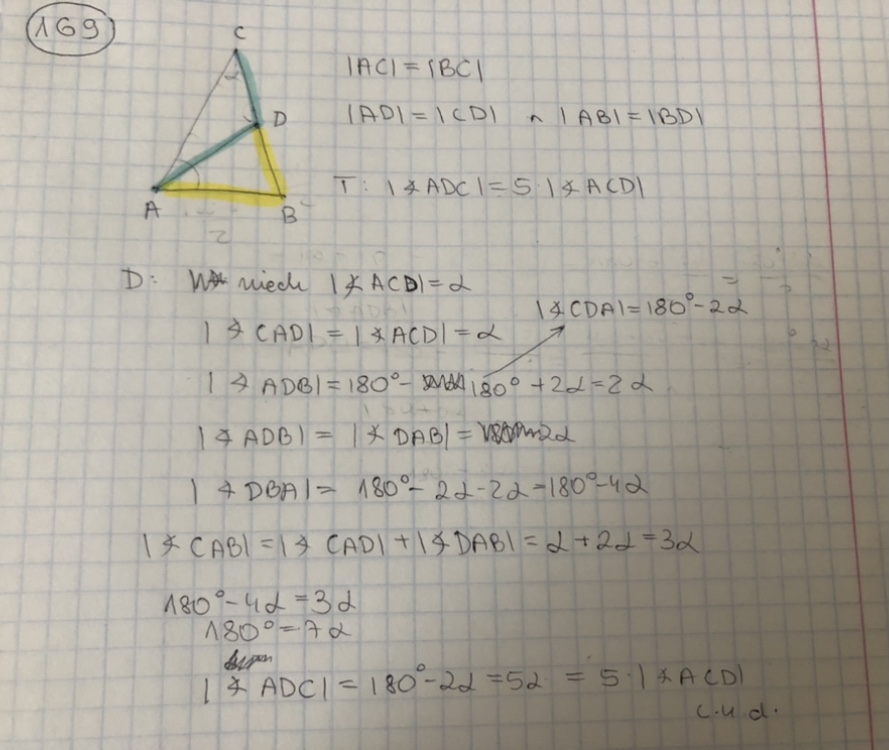 169
C
D
A
B
|AC| = |BC|
|AD| = |CD| ∧ |AB| = |BD|
T: |∢ADC| = 5·|∢ACD|
D: niech |∢ACD| = α
|∢CDA| = 180° - 2α
|∢CAD| = |∢ACD| = α
|∢ADB| = 180° - 180° + 2α = 2α
|∢ADB| = |∢DAB| = 2α
|∢DBA| = 180° - 2α - 2α = 180° - 4α
|∢CAB| = |∢CAD| + |∢DAB| = α + 2α = 3α
180° - 4α = 3α
180° = 7α
|∢ADC| = 180° - 2α = 5α = 5·|∢ACD|
c.u.d.